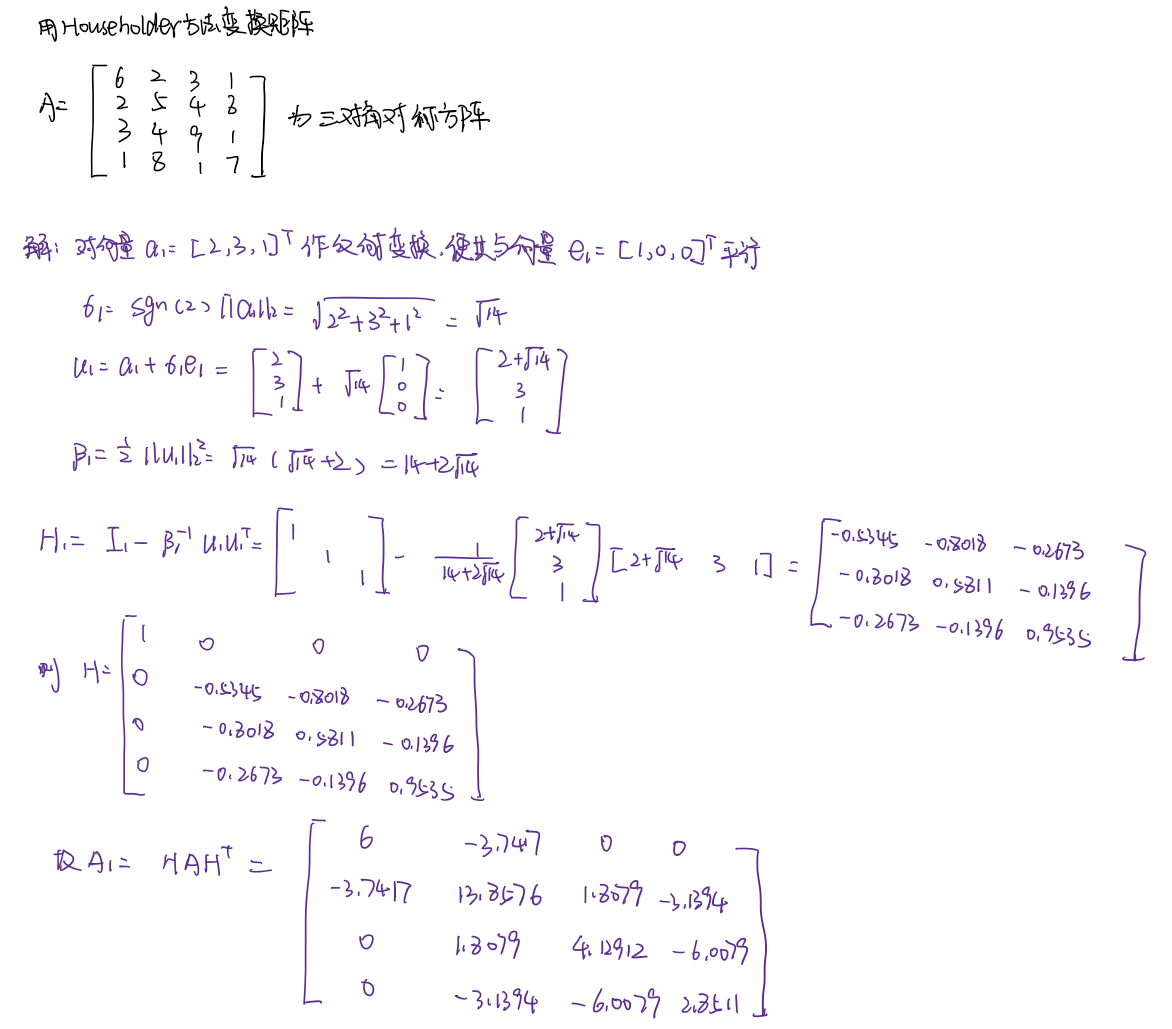 用Householder方法变换矩阵
A= [ 6 2 3 1
2 5 4 8
3 4 9 1
1 8 1 7 ] 为三对角对称方阵
解: 对向量 a₁= [2,3,1]ᵀ 作反射变换,使其与向量 e₁= [1,0,0]ᵀ平行
б₁= sgn(2) ||a₁||₂= √(2²+3²+1²) = √14
u₁= a₁+б₁e₁ = [ 2 3 1 ] + √14 [ 1 0 0 ] = [ 2+√14 3 1 ]
β₁= ½ ||u₁||₂²= √14 (√14+2) = 14+2√14
H₁= I₁-β₁⁻¹ u₁u₁ᵀ= [ 1 1 1 ] - 1/(14+2√14) [ 2+√14 3 1 ] [2+√14 3 1] = [ -0.5345 -0.8018 -0.2673
-0.8018 0.5811 -0.1396
-0.2673 -0.1396 0.9535 ]
则 H= [ 1 0 0 0
0 -0.5345 -0.8018 -0.2673
0 -0.8018 0.5811 -0.1396
0 -0.2673 -0.1396 0.9535 ]
A₁= HAHᵀ = [ 6 -3.747 0 0
-3.7417 13.8576 1.8079 -3.1394
0 1.8079 4.12912 -6.0079
0 -3.1394 -6.0079 2.8511 ]